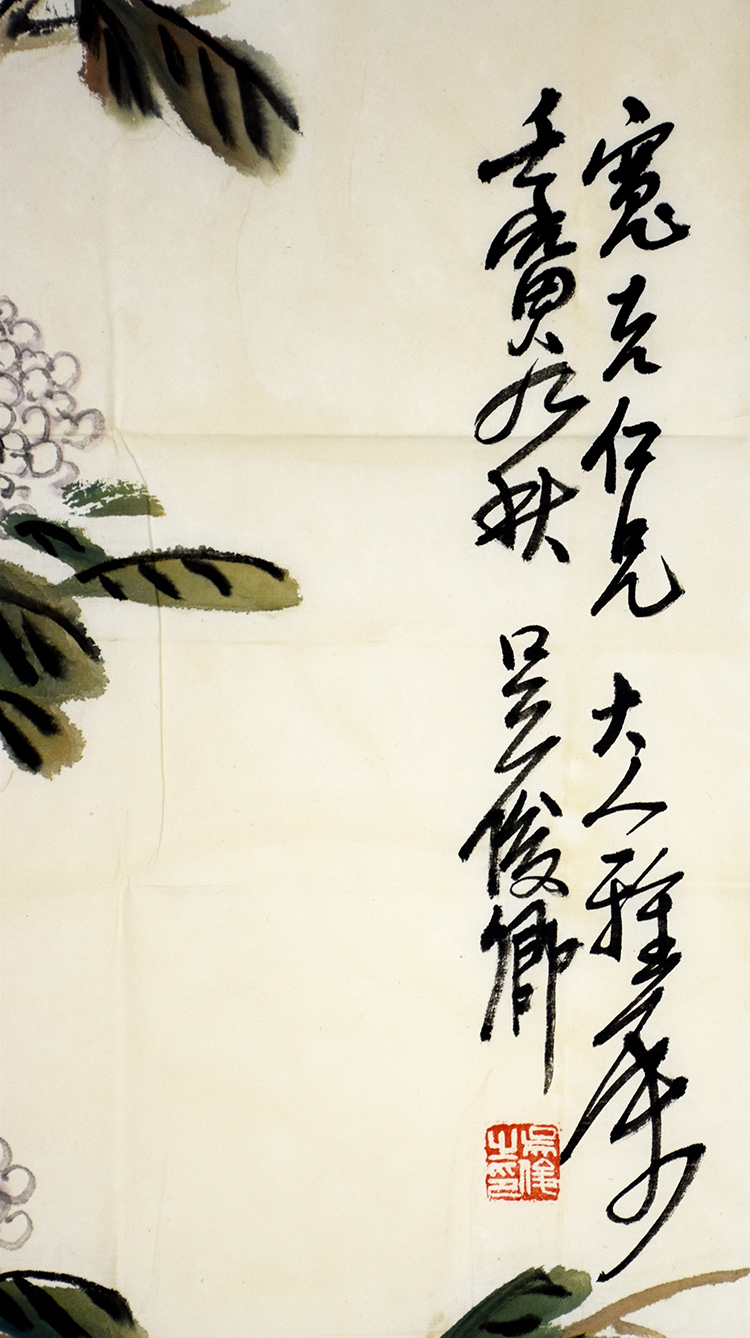 寬吉仁兄大人雅屬
壬寅九秋 吳俊卿
吳俊之印